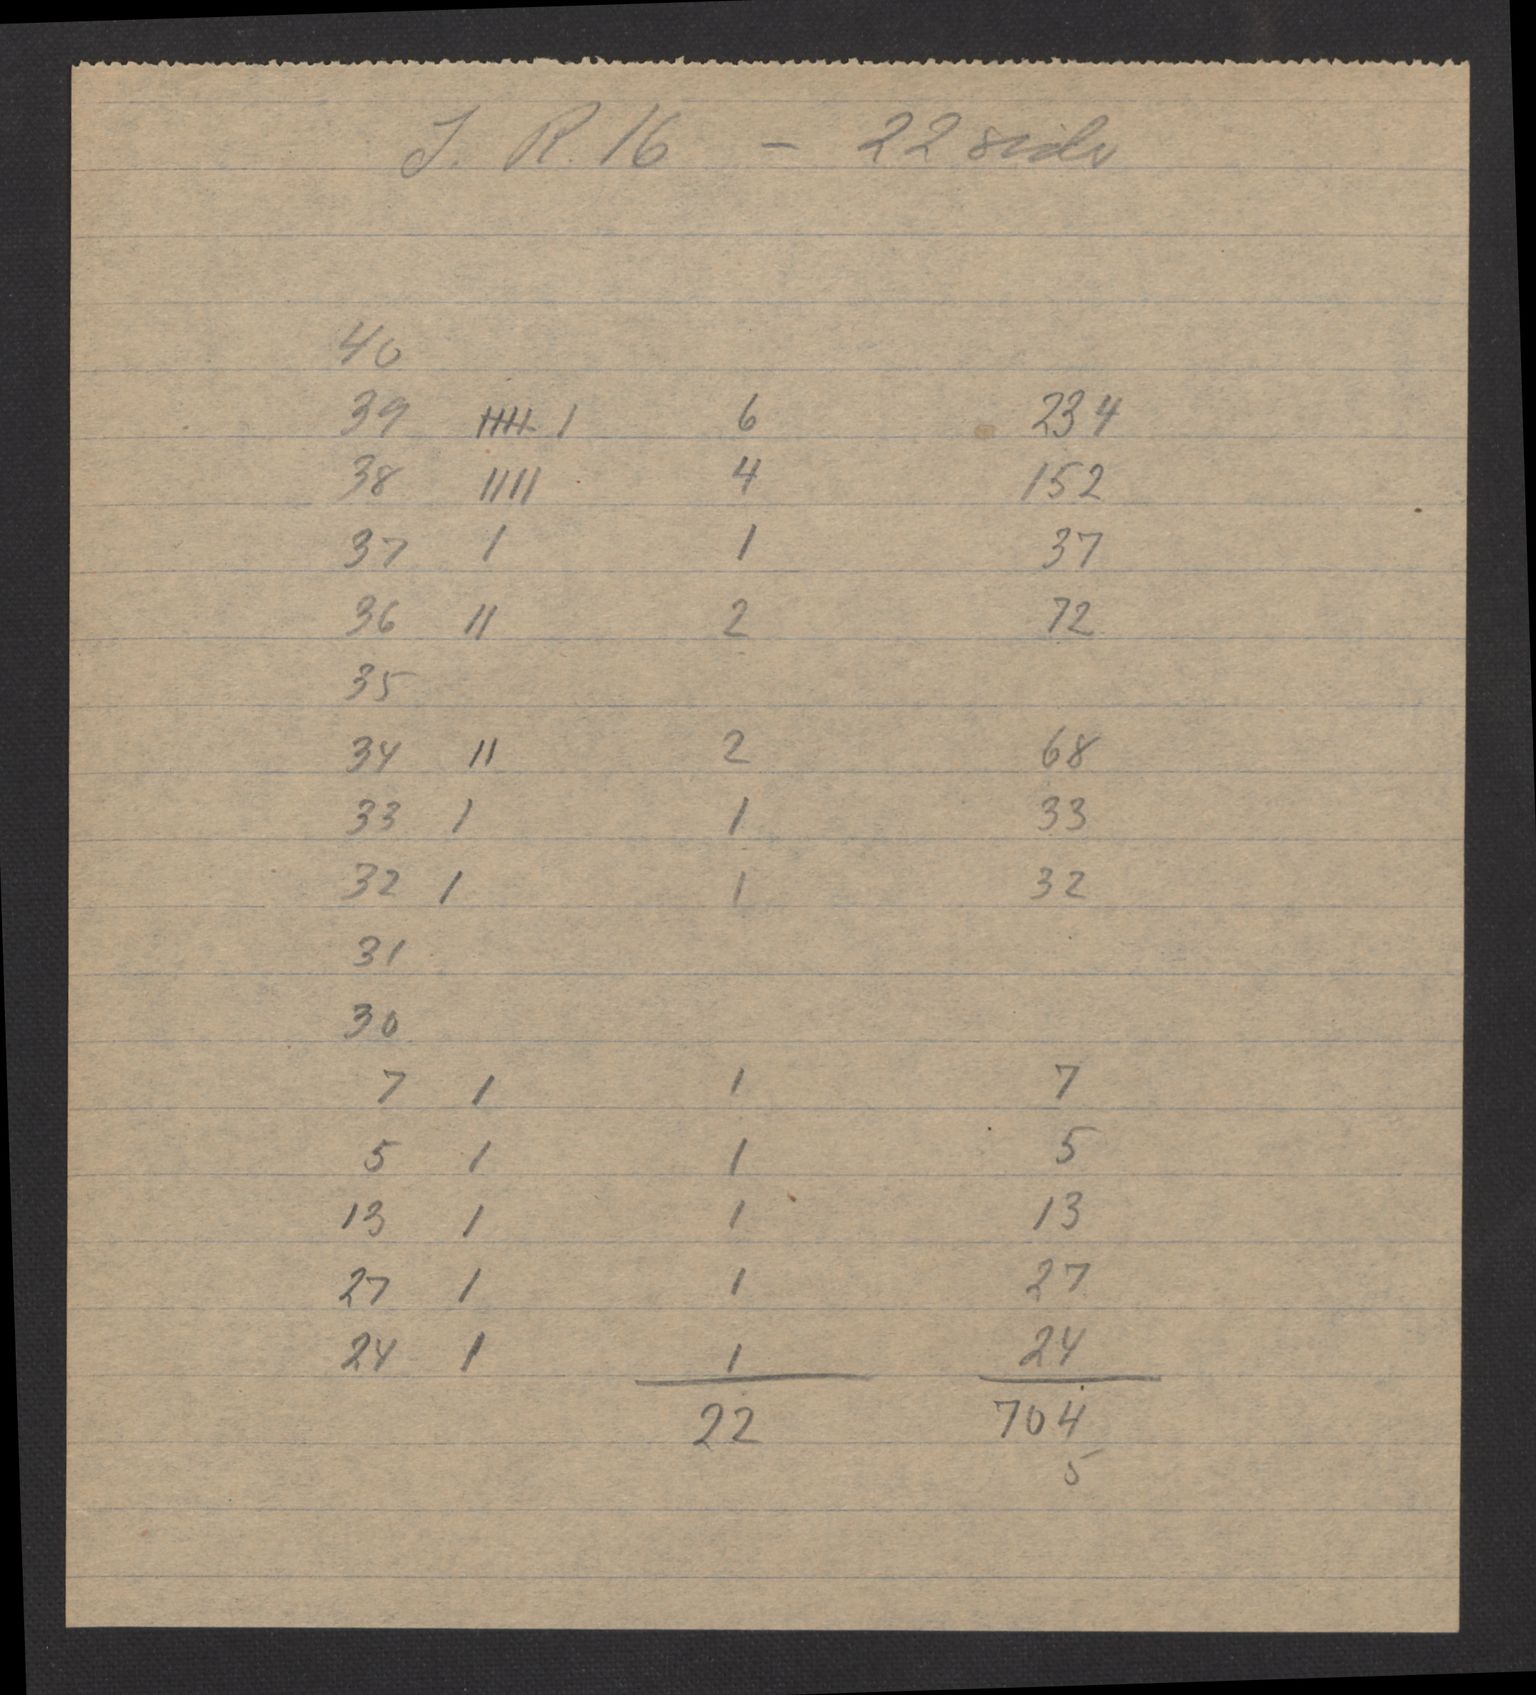 J. R. 16 — 22 sider
40
39 |||| | 6 234
38 |||| 4 152
37 | 1 37
36 || 2 72
35
34 || 2 68
33 | 1 33
32 | 1 32
31
30
7 | 1 7
5 | 1 5
13 | 1 13
27 | 1 27
24 | 1 24
22 704
5